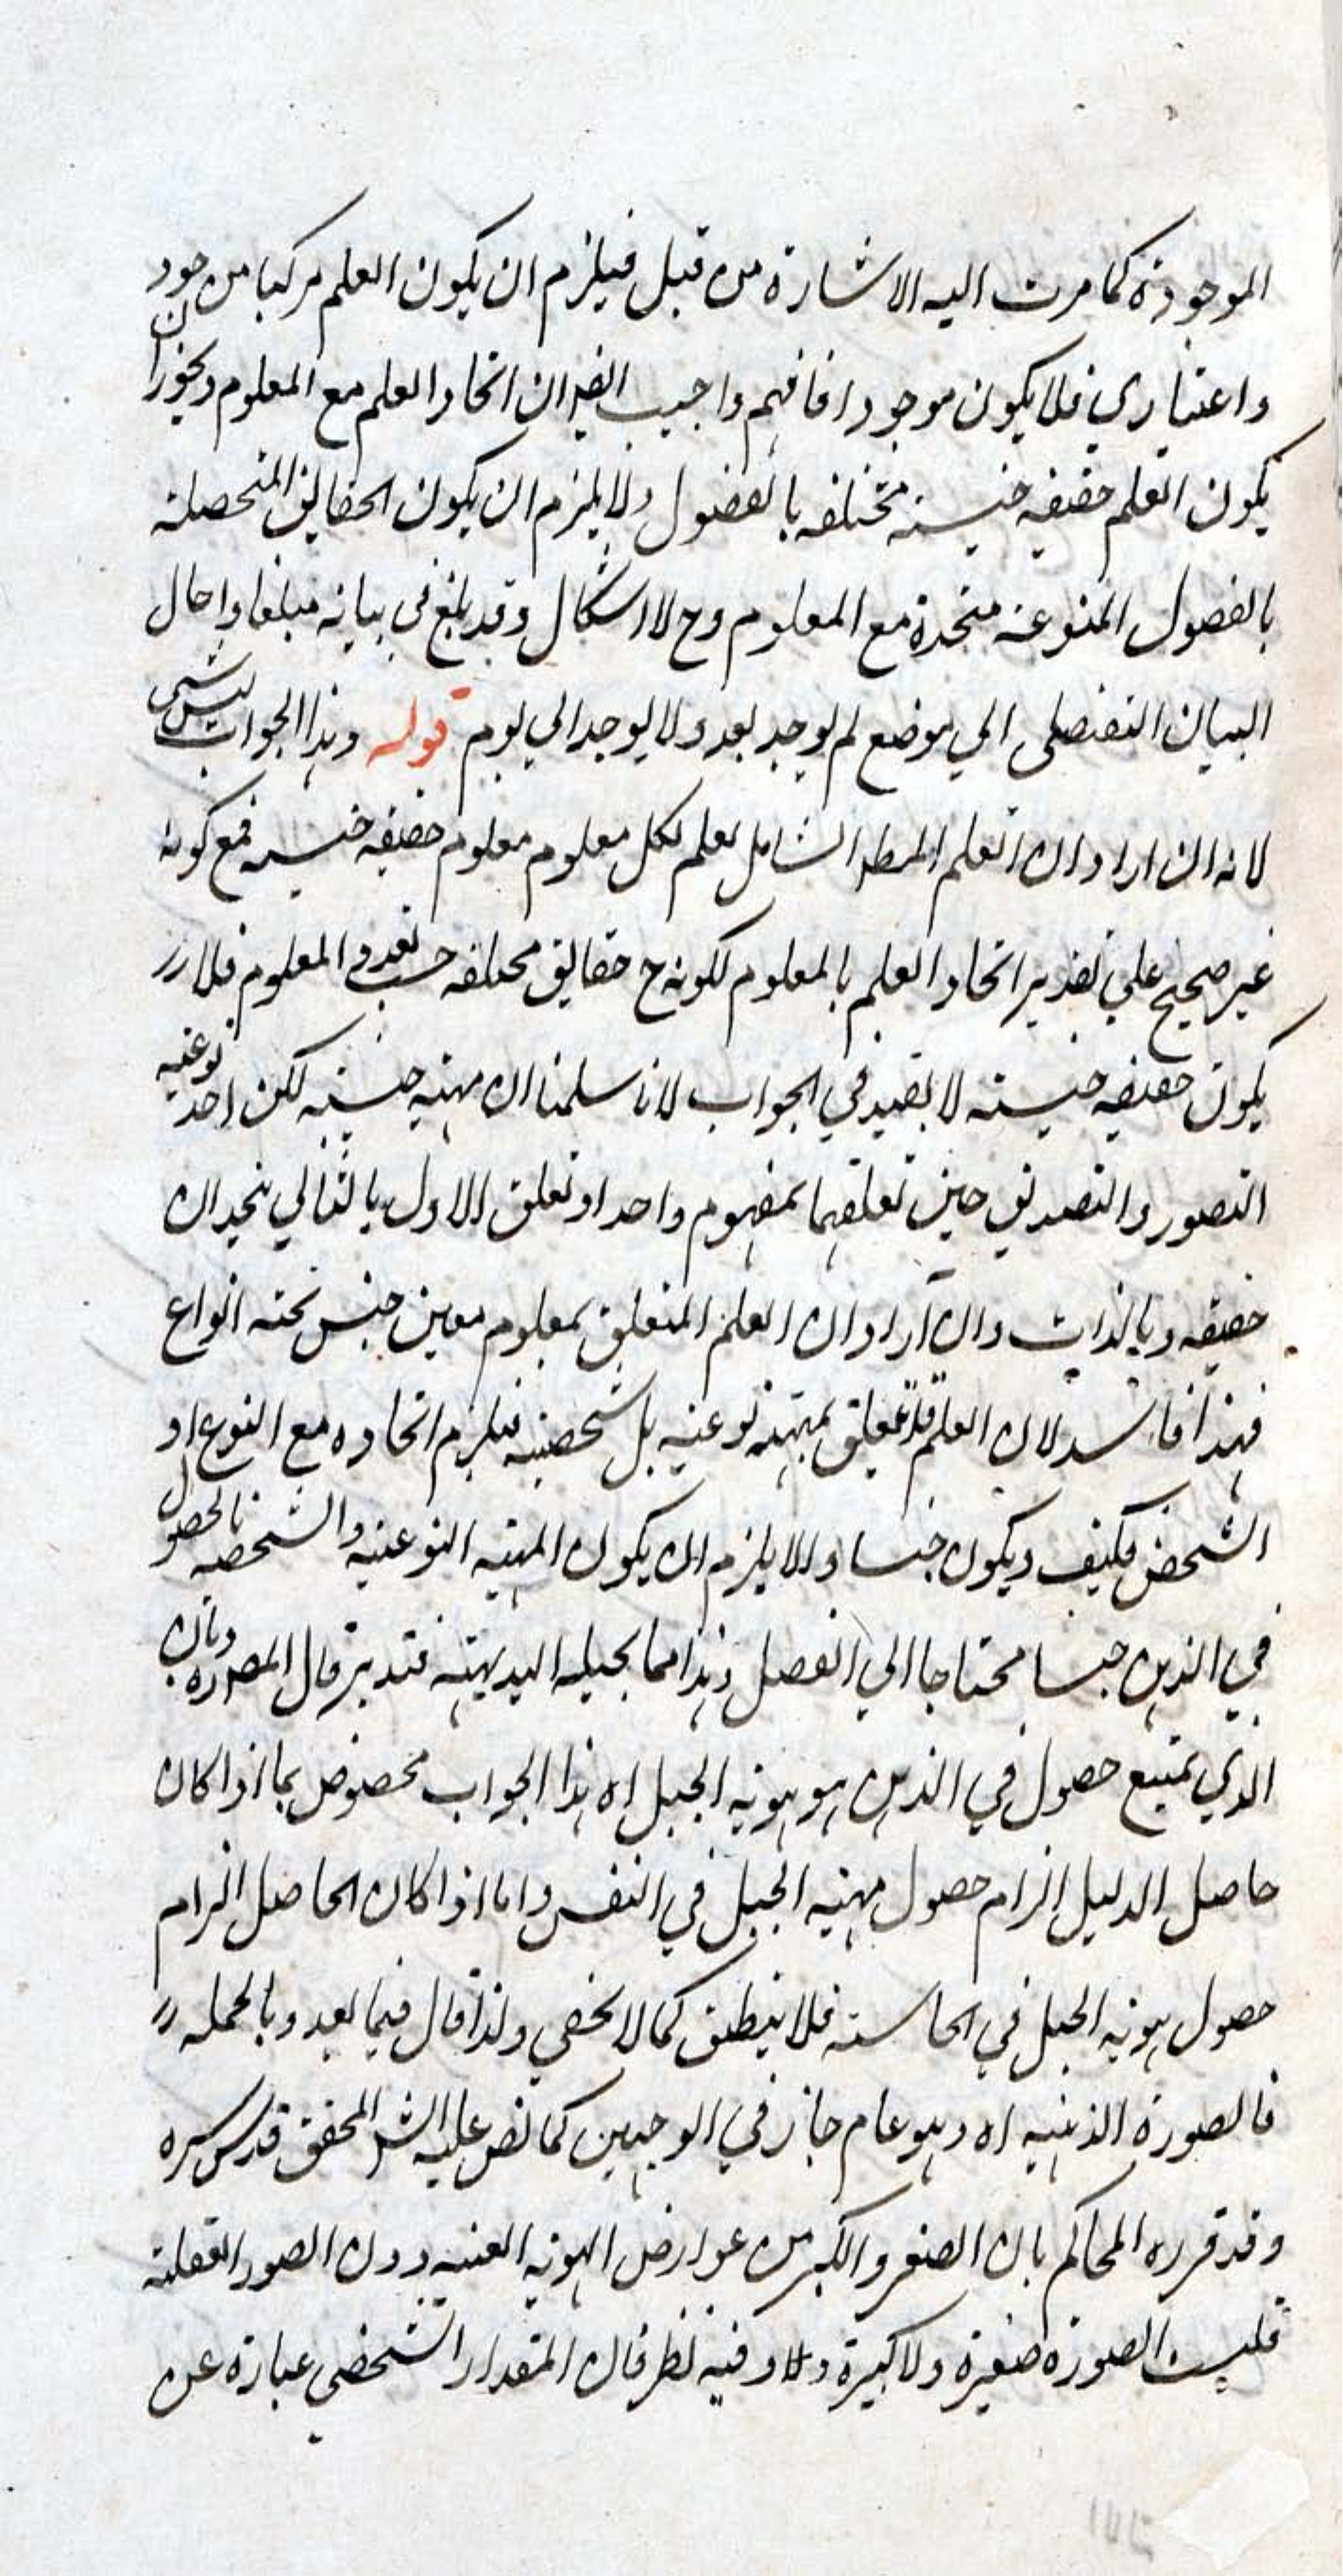 الموجودة كما مرت اليه الاشارة من قبل فيلزم ان يكون العلم مركبا من موجود
واعتباري فلا يكون موجودا فافهم واجيب ايضا ان اتحاد العلم مع المعلوم ويجوز ان
يكون العلم حقيقة جنسية مختلفة بالفصول ولا يلزم ان يكون الحقايق المتحصلة
بالفصول المنوعة متحدة مع المعلوم وح لا اشكال وقد بلغ في بيانه مبلغا واحال
البيان التفصيلي الي موضع لم يوجد بعد ولا يوجد الي يوم قوله وهذا الجواب ليس بشي
لانه ان اراد ان العلم المط الشامل لعلم لكل معلوم معلوم حقيقة جنسية فمع كونه
غير صحيح علي تقدير اتحاد العلم بالمعلوم لكونه ح حقايق مختلفة حسب تعدد المعلوم فلا
يكون حقيقة جنسية لا يفيد في الجواب لانا سلمنا ان مهية جنسية لكن احد نوعيه
التصور والتصديق حين تعلقهما بمفهوم واحد او تعلق الاول بالثاني يتحدان
حقيقة وبالذات وان اراد ان العلم المتعلق بمعلوم معين جنس تحته انواع
فهذا فاسد لان العلم قد تعلق بمهية نوعية بل شخصية فيلزم اتحاده مع النوع او
الشخص فكيف ويكون جنسا والا يلزم ان يكون المهية النوعية والشخصية بالحصول
في الذهن جنسا محتاجا الي الفصل وهذا مما يحيله البديهة فتدبر قال المص ره وبان
الذي يمتنع حصول في الذهن هو هوية الجبل اه هذا الجواب مخصوص بما اذا كان
حاصل الدليل الزام حصول مهية الجبل في النفس واما اذا كان الحاصل الزام
حصول هوية الجبل في الحاسة فلا ينطبق كما لا يخفي ولذا قال فيما بعد وبالجملة
فالصورة الذهنية اه وهو عام جاز في الوجهين كما نص عليه الش المحقق قدس سره
وقد قرره المحاكم بان الصغر والكبر من عوارض الهوية العينية دون الصور العقلية
فليست الصورة صغيرة ولا كبيرة وفيه نظر فان المقدار الشخصي عبارة عن